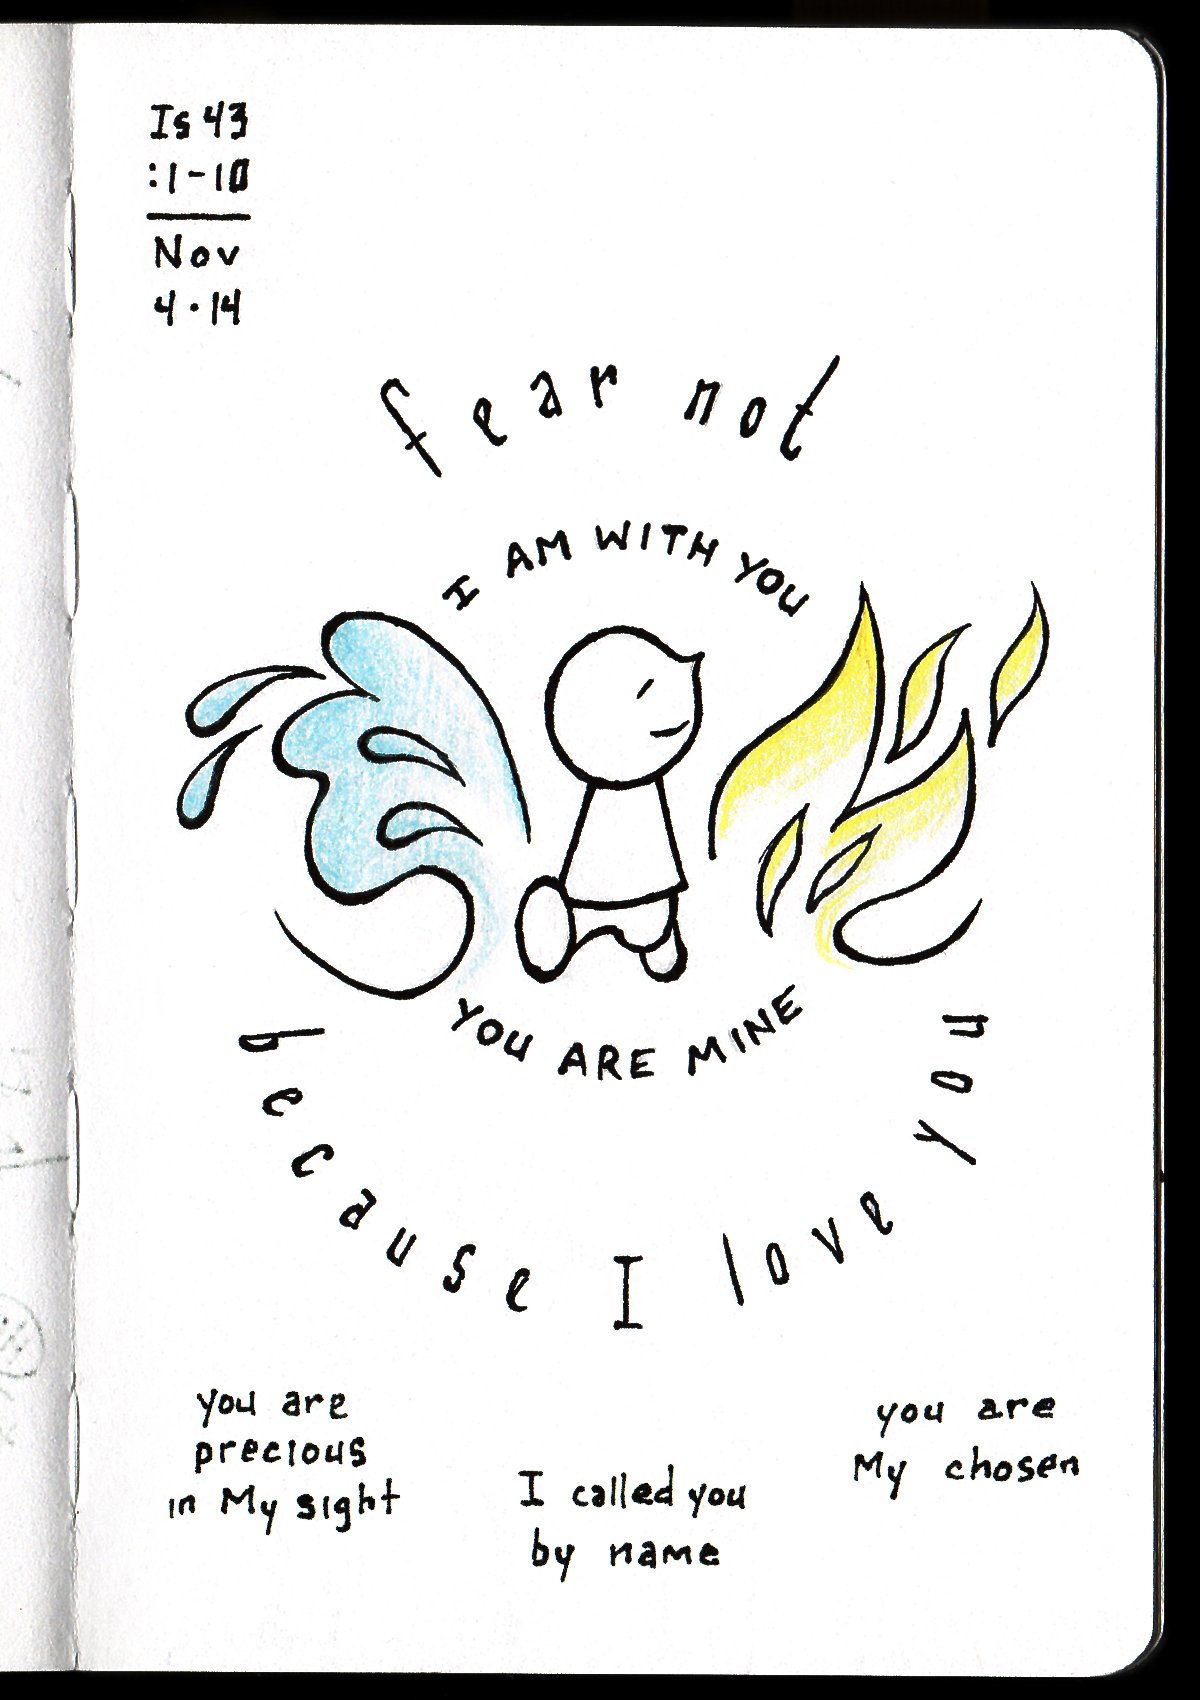 Is 43
:1-10
Nov
4·14
fear not
I AM WITH YOU
YOU ARE MINE
because I love you
you are
precious
in My sight
I called you
by name
you are
My chosen